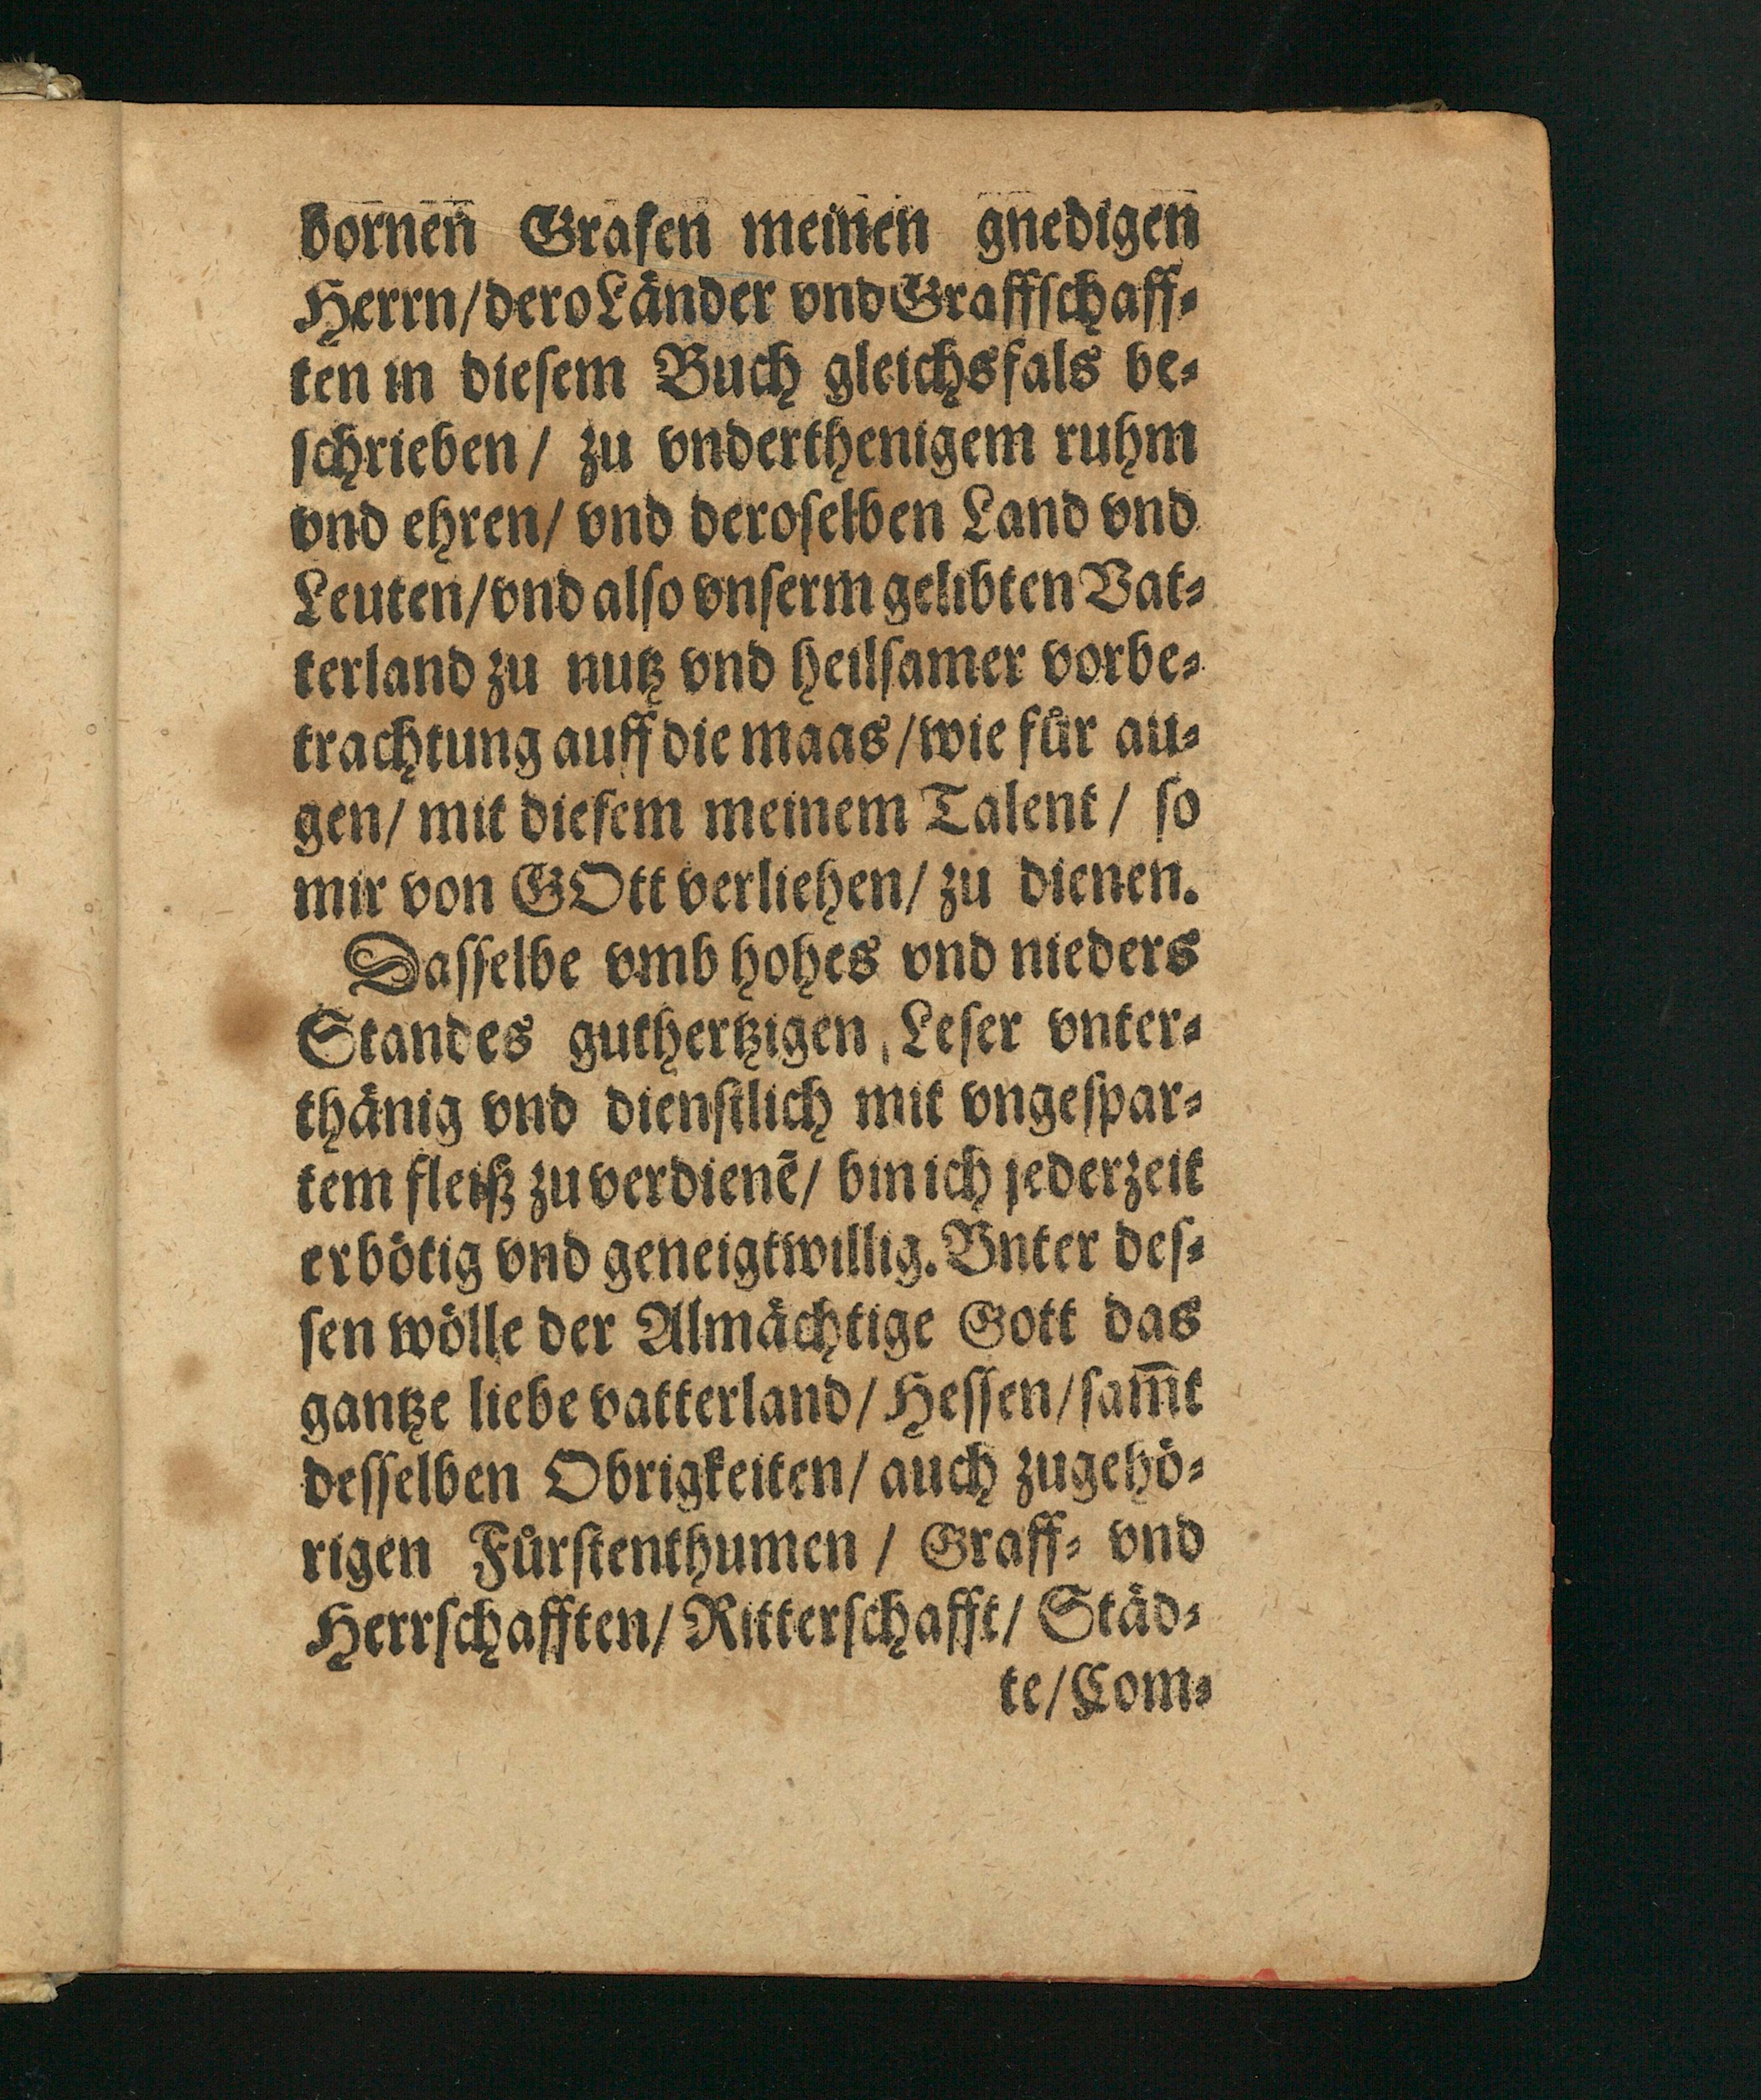 bornen Grafen meinen gnedigen
Herrn/dero Länder vnd Graffschaff⸗
ten in diesem Buch gleichsfals be⸗
schrieben/ zu vnderthenigem ruhm
vnd ehren/ vnd deroselben Land vnd
Leuten/vnd also vnserm gelibten Vat⸗
terland zu nutz vnd heilsamer vorbe⸗
trachtung auff die maas/wie für au⸗
gen/ mit diesem meinem Talent/ so
mir von GOtt verliehen/ zu dienen.
Dasselbe vmb hohes vnd nieders
Standes guthertzigen Leser vnter⸗
thänig vnd dienstlich mit vngespar⸗
tem fleiß zu verdienẽ/ bin ich jederzeit
erbötig vnd geneigtwillig. Vnter des⸗
sen wölle der Almächtige Gott das
gantze liebe vatterland/ Hessen/sam̃t
desselben Obrigkeiten/ auch zugehö⸗
rigen Fürstenthumen / Graff⸗ vnd
Herrschafften/ Ritterschafft/ Städ⸗
te/Com⸗